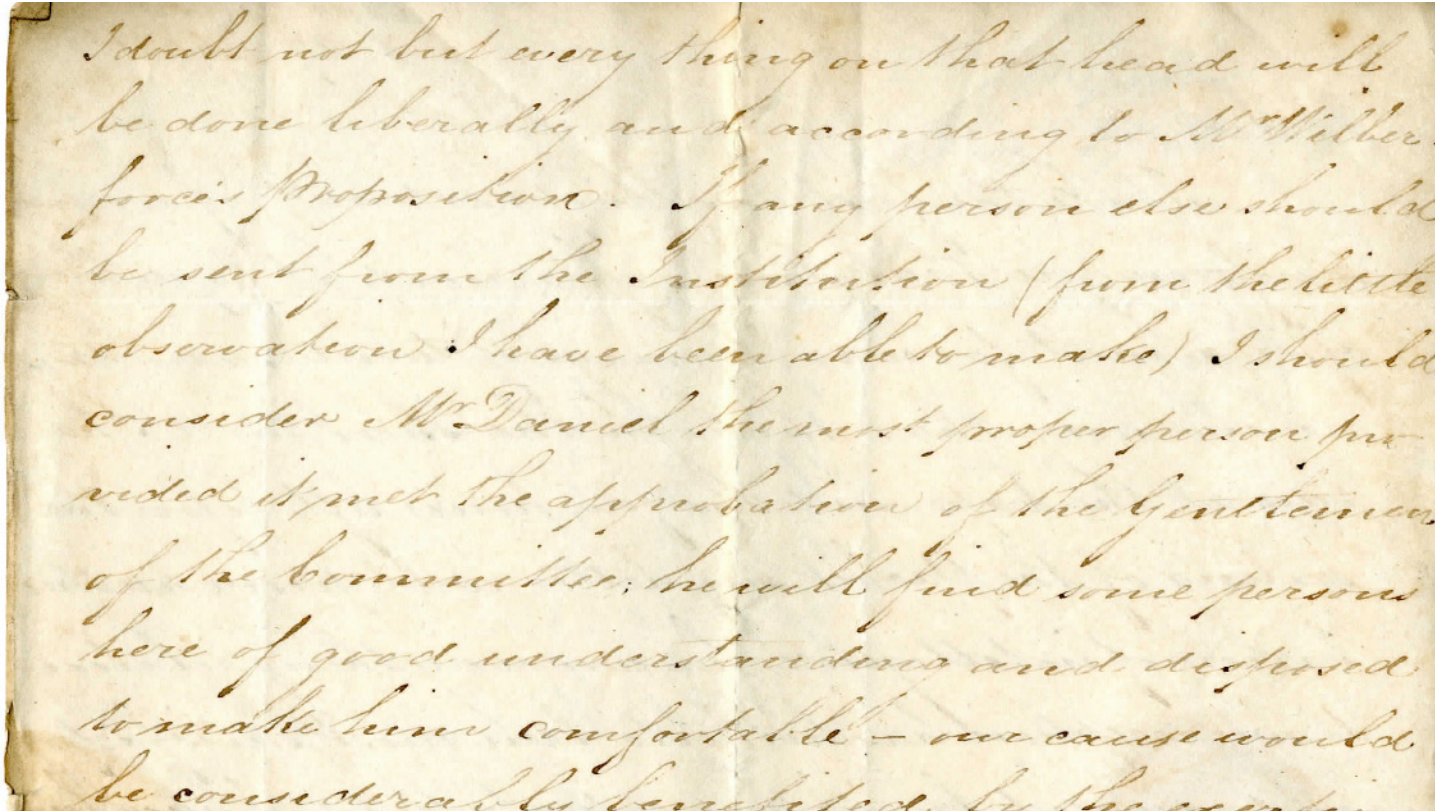 I doubt not but every thing on that head will
be done liberally and according to Mr Wilber-
force's Proposition. If any person else should
be sent from the Institution (from the little
observation I have been able to make) I should
consider Mr Daniel the most proper person pro-
vided it met the approbation of the Gentlemen
of the Committee; he will find some persons
here of good understanding and disposed
to make him comfortable - our cause would
be considerably benefited by the